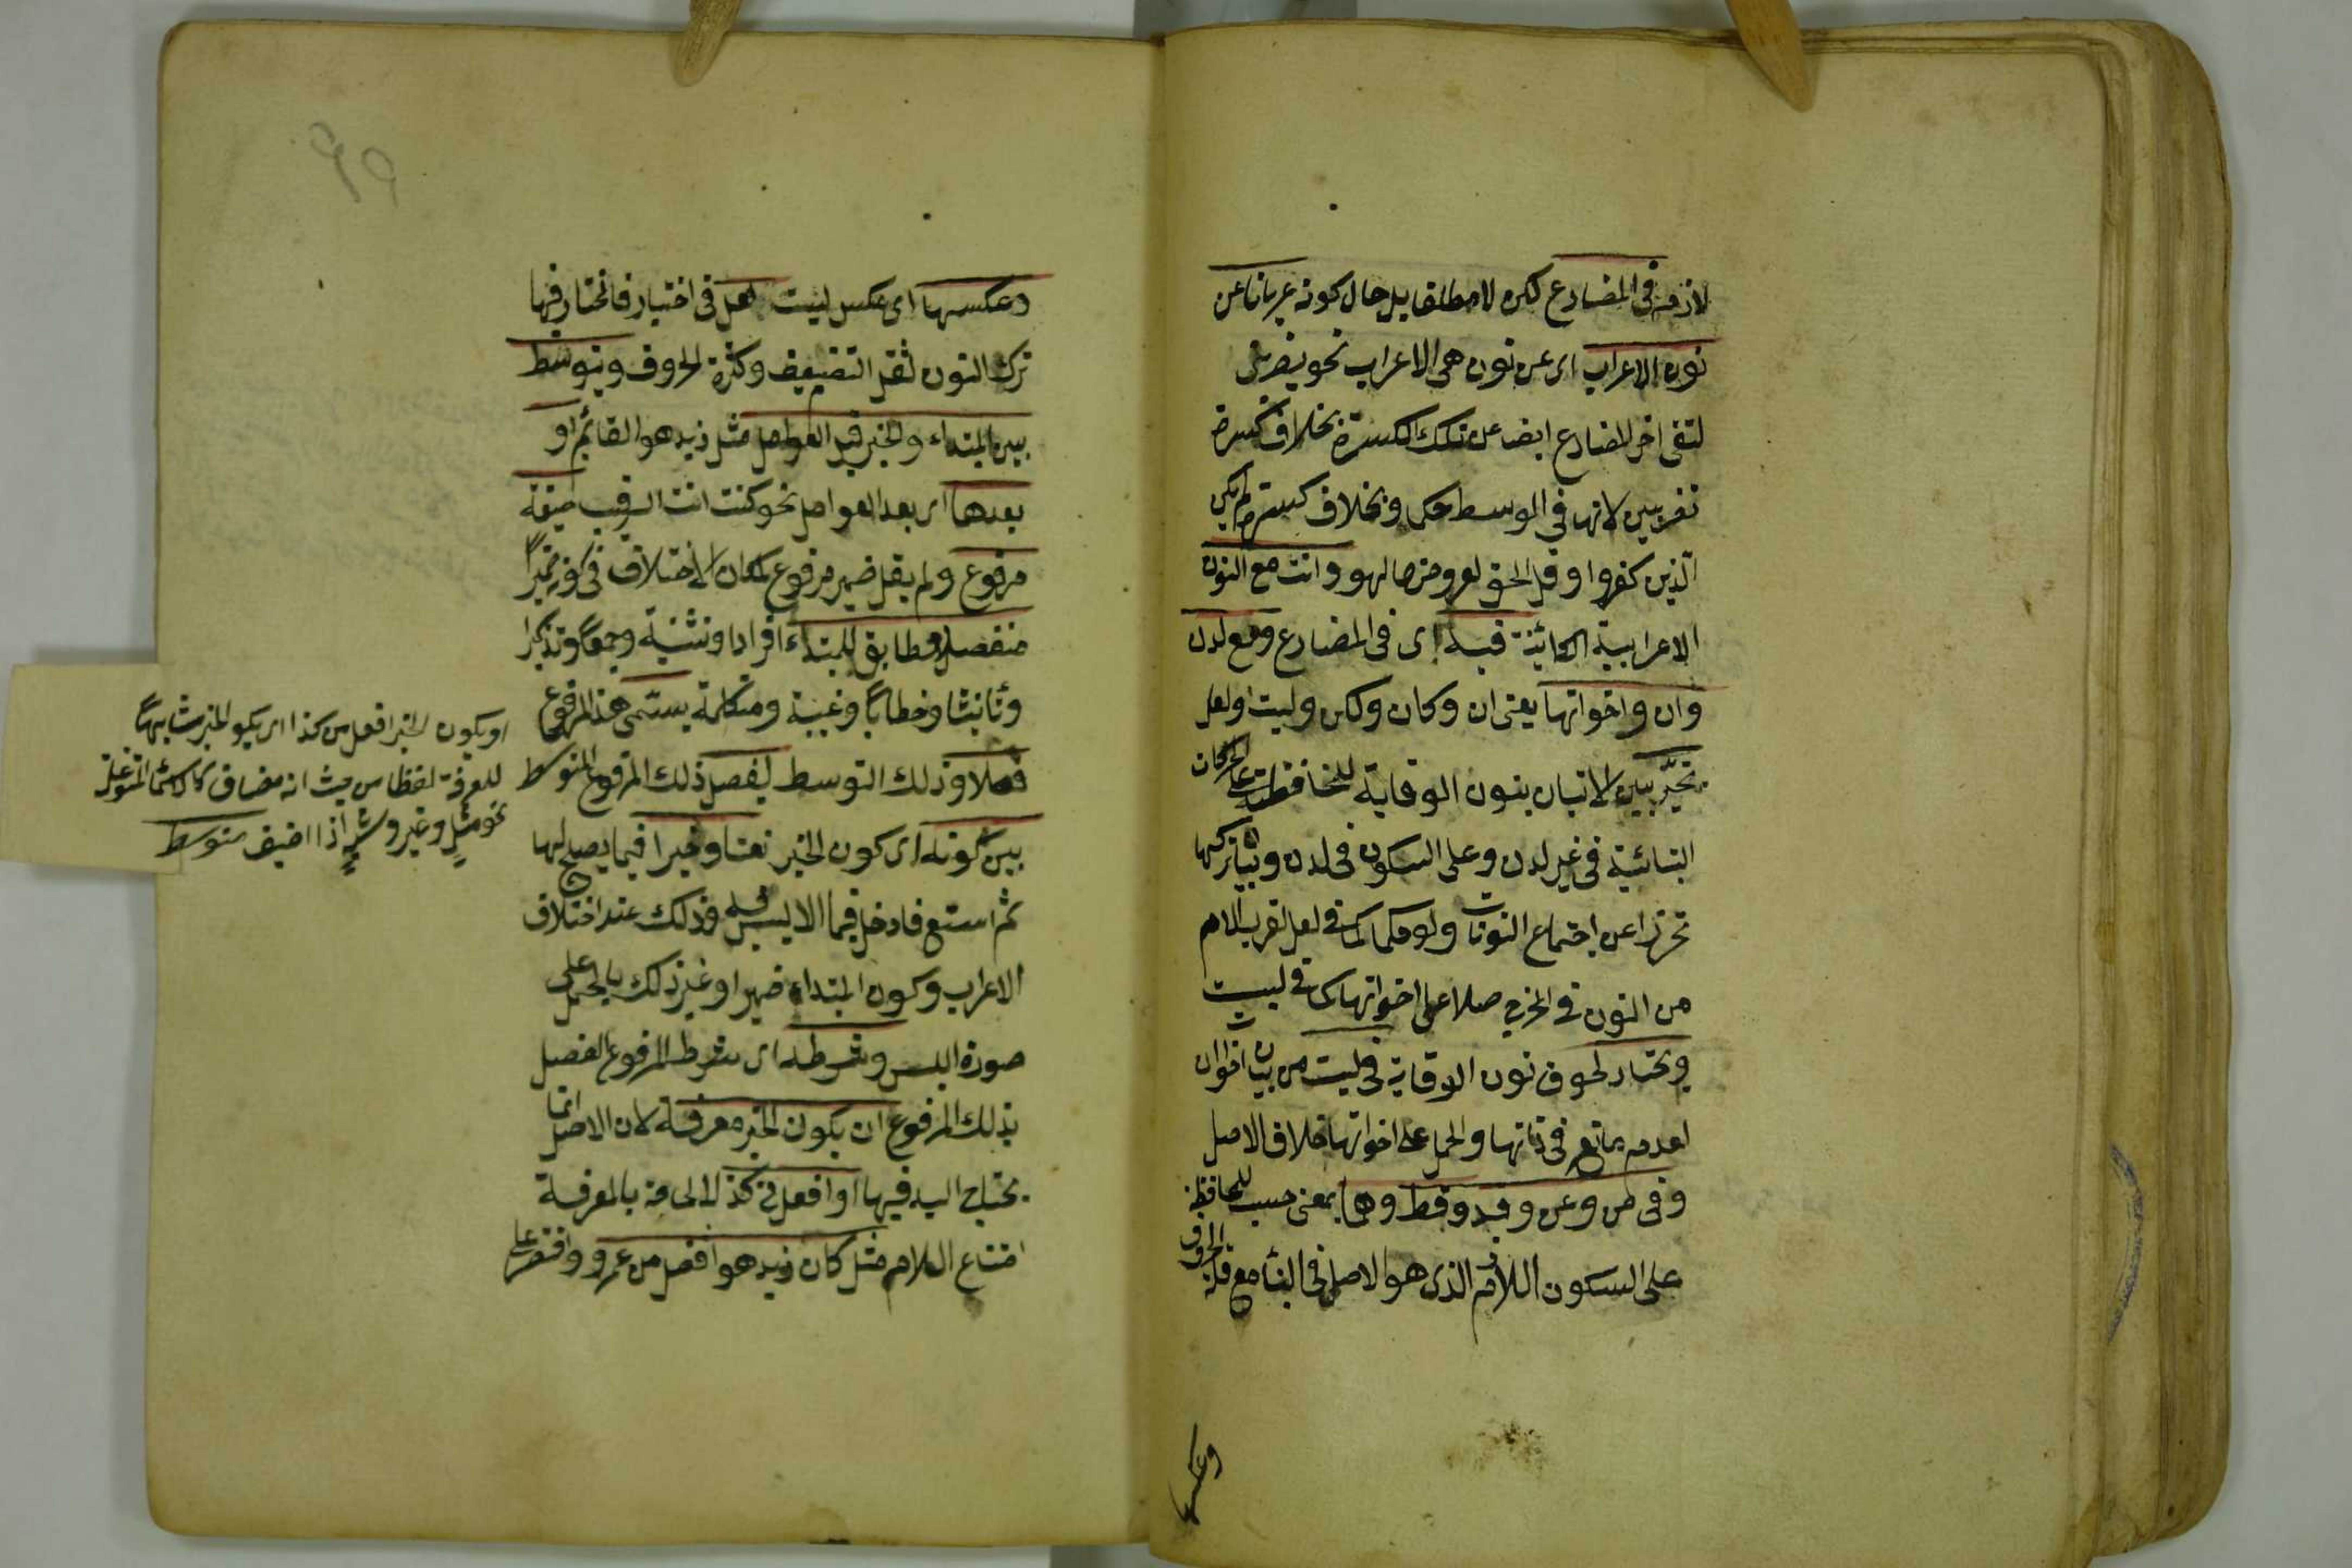 لازمة في المضارع لكن لا مطلقا بل حال كونه عريانا عن
نون الاعراب اى عن نون هى الاعراب نحو يضربنى
لتقى اخر المضارع ايضا عن تلك الكسرة بخلاف كسرة
تضربين لانها في الوسط حكما وبخلاف كسرة لم يكن
الذين كفروا وقل الحق لعروضهما لهو وانت مع النون
الاعرابية الكائنة فيه اى في المضارع ومع لدن
وان واخواتها يعنى ان وكان ولكن وليت ولعل
مخير بين الاتيان بنون الوقاية للمحافظة على الحركات
البنائية في غير لدن وعلى السكون في لدن وبين تركها
تحرزا عن اجتماع النونات ولو حكما كما في لعل لقرب اللام
من النون في المخرج حملا على اخواتها كما في ليت
ويختار لحوق نون الوقاية في ليت من بين اخوات ان
لعدم مانع في ذاتها والحمل على اخواتها خلاف الاصل
وفى من وعن وقد وقط وهما بمعنى حسب للمحافظة
على السكون اللازم الذى هو الاصل في البناء مع قلة الحروف
وعكسها
وعكسها اى عكس ليت لعل في اختيار فالمختار فيها
ترك النون لثقل التضعيف وكثرة الحروف ويتوسط
بين المبتداء والخبر قبل العوامل مثل زيد هو القائم او
بعدها اى بعد العوامل نحو كنت انت الرقيب صيغة
مرفوع ولم يقل ضمير مرفوع لمكان الاختلاف في كونه ضميرا
منفصل مطابق للمبتداء افرادا وتثنية وجمعا وتذكيرا
وتأنيثا وخطابا وغيبة ومتكلمة يسمى هذا المرفوع
فصلا وذلك التوسط ليفصل ذلك المرفوع المتوسط
بين كونه اى كون الخبر نعتا وخبرا فيما يصلح لهما
ثم استع فادخل فيما لا لبس فيه وذلك عند اختلاف
الاعراب وكون المبتداء ضميرا وغير ذلك بالحمل على
صورة اللبس وشرطه اى شرط المرفوع الفصل
بذلك المرفوع ان يكون الخبر معرفة لان الاصل انما
يحتاج اليه فيها او افعل من كذا لالحاقه بالمعرفة
امتناع اللام مثل كان زيد هو افضل من عمرو واقتصر على
او يكون الخبر افعل من كذا اى يكون الخبر مشابها
للمعرفة لفظا من حيث انه مضاف كالاسماء المتوغلة
نحو مثل وغير وشبه اذا اضيف متوسط